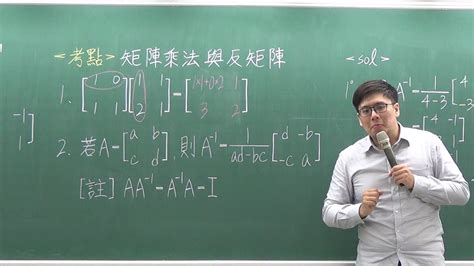 <考點> 矩陣乘法與反矩陣
1. [1 0; 1 1][1 1; 2 1] = [1×1+0×2 1; 3 2]
2. 若A=[a b; c d], 則 A⁻¹=1/(ad-bc)[d -b; -c a]
[註] AA⁻¹=A⁻¹A=I
-1]
1]
<sol>
1° A⁻¹=1/(4-3)[4
=[4 -1